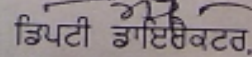 ਡਿਪਟੀ ਡਾਇਰੈਕਟਰ,